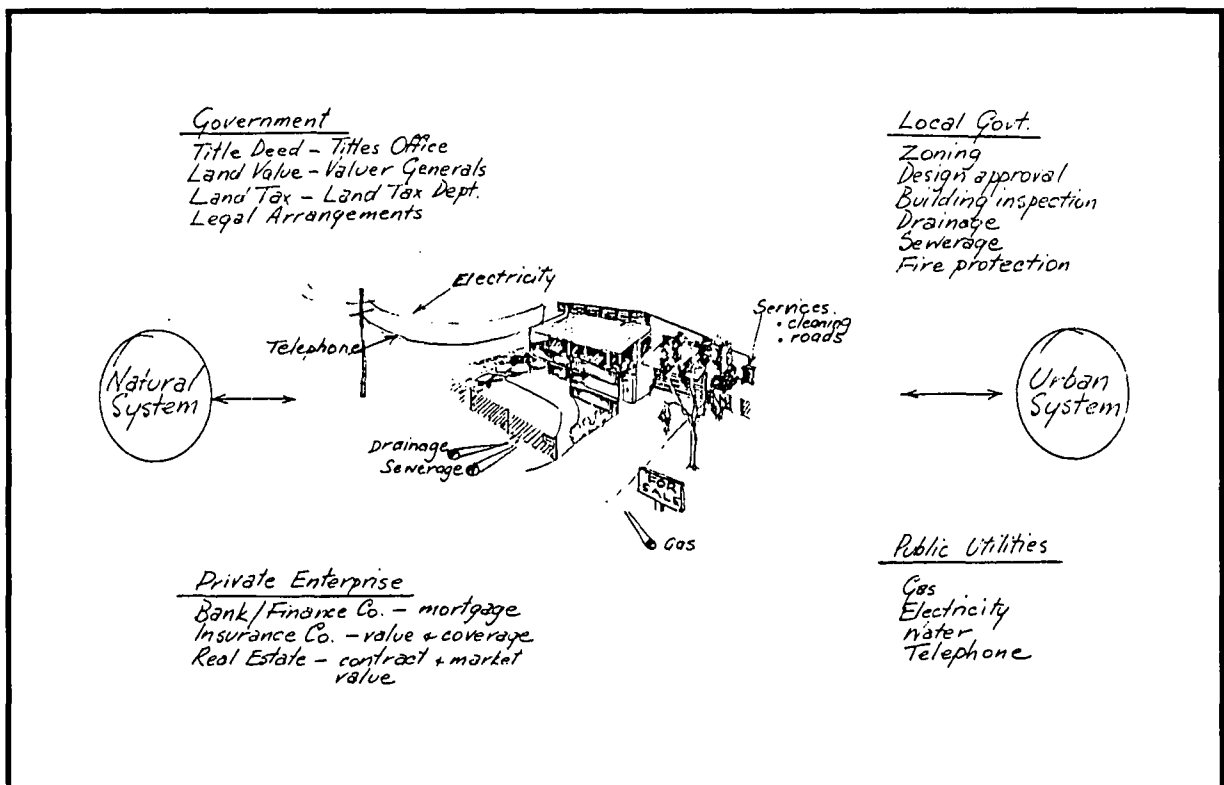 Government
Title Deed - Titles Office
Land Value - Valuer Generals
Land Tax - Land Tax Dept.
Legal Arrangements
Local Govt.
Zoning
Design approval
Building inspection
Drainage
Sewerage
Fire protection
Electricity
Telephone
Services.
• cleaning
• roads
Natural
System
Urban
System
Drainage
Sewerage
FOR
SALE
Gas
Private Enterprise
Bank/Finance Co. - mortgage
Insurance Co. - value & coverage
Real Estate - contract & market
value
Public Utilities
Gas
Electricity
Water
Telephone